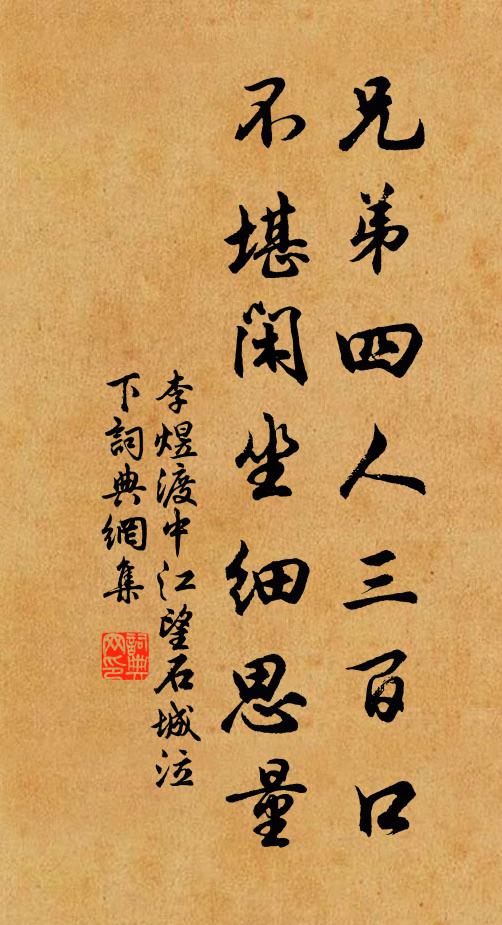 兄弟四人三百口
不堪閑坐細思量
李煜渡中江望石城泣
下詞典網集
詞典網印